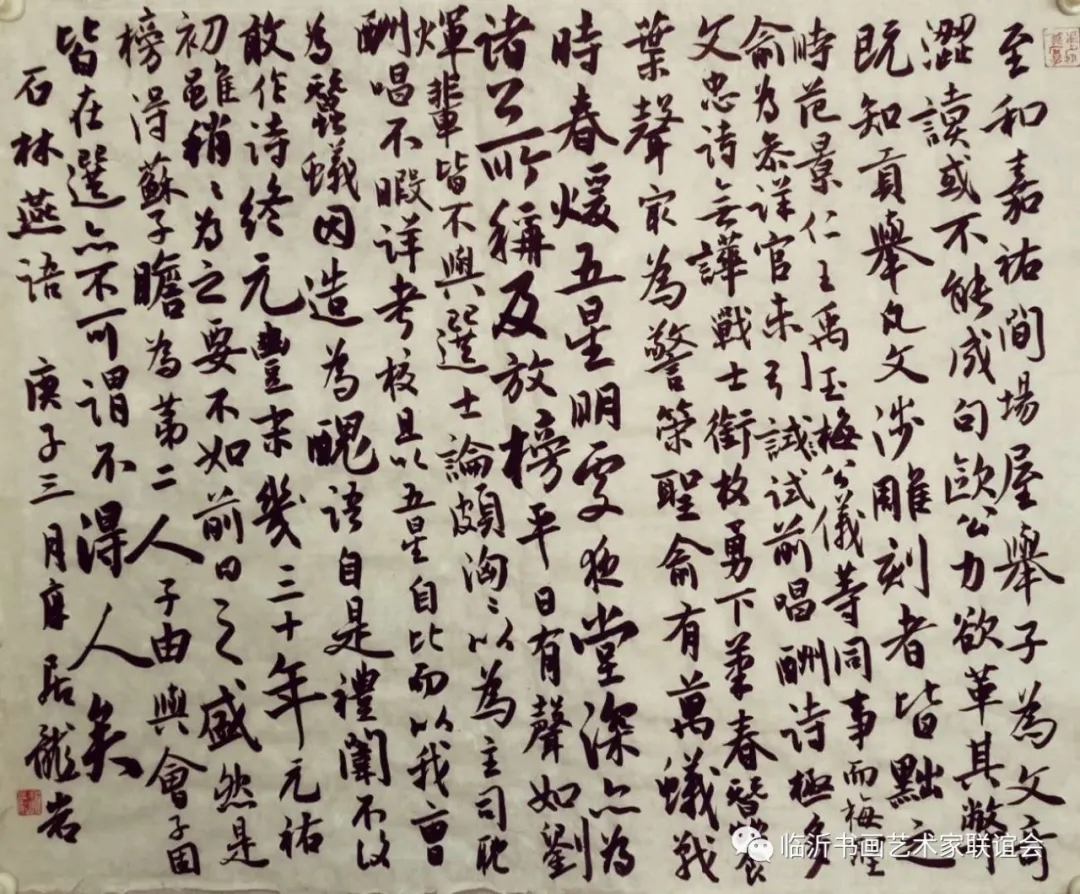 至和嘉祐間場屋舉子為文奇
澀讀或不能成句歐公力欲革其弊
既知貢舉凡文涉雕刻者皆黜之
時范景仁王禹玉梅公儀等同事而梅聖
俞為參詳官未引試試前唱酬詩極多
文忠詩無譁戰士銜枚勇下筆春蠶食
葉聲最為警策聖俞有萬蟻戰
時春煖五星明處夜堂深亦為
諸公所稱及放榜平日有聲如劉
煇輩皆不與選士論頗洶〻以為主司耽
酬唱不暇詳考校且以五星自比而以我曹
為蠶蟻因造為醜語自是禮闈不復
敢作詩終元豐末幾三十年元祐
初雖稍〻為之要不如前日之盛然是
榜得蘇子瞻為第二人子由與會子固
皆在選亦不可謂不得人矣
石林燕語 庚子三月 居龍岩
临沂书画艺术家联谊会